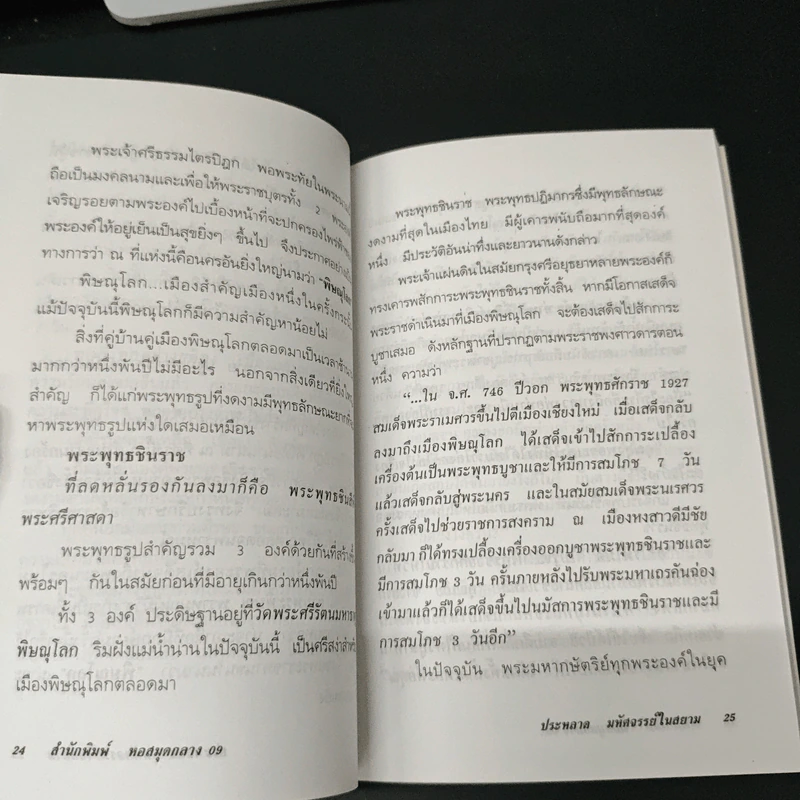 พระเจ้าศรีธรรมไตรปิฎก พอพระทัยในพระนาม
ถือเป็นมงคลนามและเพื่อให้พระราชบุตรทั้ง 2
เจริญรอยตามพระองค์ไปเบื้องหน้าที่จะปกครองไพร่ฟ้า
พระองค์ให้อยู่เย็นเป็นสุขยิ่งๆ ขึ้นไป จึงประกาศอย่าง
ทางการว่า ณ ที่แห่งนี้คือนครอันยิ่งใหญ่นามว่า "พิษณุโลก
พิษณุโลก...เมืองสำคัญเมืองหนึ่งในครั้ง
แม้ปัจจุบันนี้พิษณุโลกก็มีความสำคัญหาน้อยไม่
สิ่งที่คู่บ้านคู่เมืองพิษณุโลกตลอดมาเป็นเวลาช้า
มากกว่าหนึ่งพันปีไม่มีอะไร นอกจากสิ่งเดียวที่ยิ่งใหญ่
สำคัญ ก็ได้แก่พระพุทธรูปที่งดงามมีพุทธลักษณะยาก
หาพระพุทธรูปแห่งใดเสมอเหมือน
พระพุทธชินราช
ที่ลดหลั่นรองกันลงมาก็คือ พระพุทธชินสี
พระศรีศาสดา
พระพุทธรูปสำคัญรวม 3 องค์ด้วยกันที่สร้าง
พร้อมๆ กันในสมัยก่อนที่มีอายุเกินกว่าหนึ่งพันปี
ทั้ง 3 องค์ ประดิษฐานอยู่ที่วัดพระศรีรัตนมหาธาตุ
พิษณุโลก ริมฝั่งแม่น้ำน่านในปัจจุบันนี้ เป็นศรีสง่าสำหรับ
เมืองพิษณุโลกตลอดมา
24 สำนักพิมพ์ หอสมุดกลาง 09
พระพุทธชินราช พระพุทธปฏิมากรซึ่งมีพุทธลักษณะ
งดงามที่สุดในเมืองไทย มีผู้เคารพนับถือมากที่สุดองค์
หนึ่ง มีประวัติอันน่าทึ่งและยาวนานดังกล่าว
พระเจ้าแผ่นดินในสมัยกรุงศรีอยุธยาหลายพระองค์ก็
ทรงเคารพสักการะพระพุทธชินราชทั้งสิ้น หากมีโอกาสเสด็จ
พระราชดำเนินมาที่เมืองพิษณุโลก จะต้องเสด็จไปสักการะ
บูชาเสมอ ดังหลักฐานที่ปรากฏตามพระราชพงศาวดารตอน
หนึ่ง ความว่า
"...ใน จ.ศ. 746 ปีวอก พระพุทธศักราช 1927
สมเด็จพระราเมศวรขึ้นไปตีเมืองเชียงใหม่ เมื่อเสด็จกลับ
ลงมาถึงเมืองพิษณุโลก ได้เสด็จเข้าไปสักการะเปลื้อง
เครื่องต้นเป็นพระพุทธบูชาและให้มีการสมโภช 7 วัน
แล้วเสด็จกลับสู่พระนคร และในสมัยสมเด็จพระนเรศวร
ครั้งเสด็จไปช่วยราชการสงคราม ณ เมืองหงสาวดีมีชัย
กลับมา ก็ได้ทรงเปลื้องเครื่องออกบูชาพระพุทธชินราชและ
มีการสมโภช 3 วัน ครั้นภายหลังไปรับพระมหาเถรคันฉ่อง
เข้ามาแล้วก็ได้เสด็จขึ้นไปนมัสการพระพุทธชินราชและมี
การสมโภช 3 วันอีก"
ในปัจจุบัน พระมหากษัตริย์ทุกพระองค์ในยุค
ประหลาด มหัศจรรย์ในสยาม 25